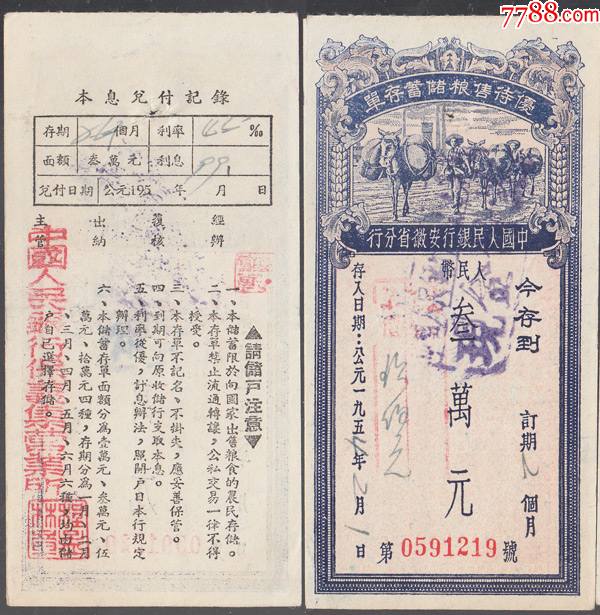 7788.com
本息兌付記錄
存期 24 個月 利率 ‰
面額 叁萬元 利息 99.
兌付日期 公元195 年 月 日
經辦
覆核
出納
主管
▲請儲戶注意▼
一、本儲蓄限於向國家出售粮食的農民存儲。
二、本存單禁止流通轉讓，公私交易一律不得
授受。
三、本存單不記名、不掛失，應妥善保管。
四、到期可向原收儲行支取本息。
五、利率從優，計息辦法，照關戶日本行規定
辦理。
六、本儲蓄存單面額分為壹萬元、叁萬元、伍
萬元、拾萬元四種，存期分為一月、二月
三月、四月、五月、六月六種，均由儲
戶自己選擇存儲。
中國人民銀行
0591219
優待售粮儲蓄存單
中國人民銀行安徽省分行
今存到 訂期 個月
人民幣
叁萬元
存入日期：公元一九五 年 2 月 1 日
第 0591219 號